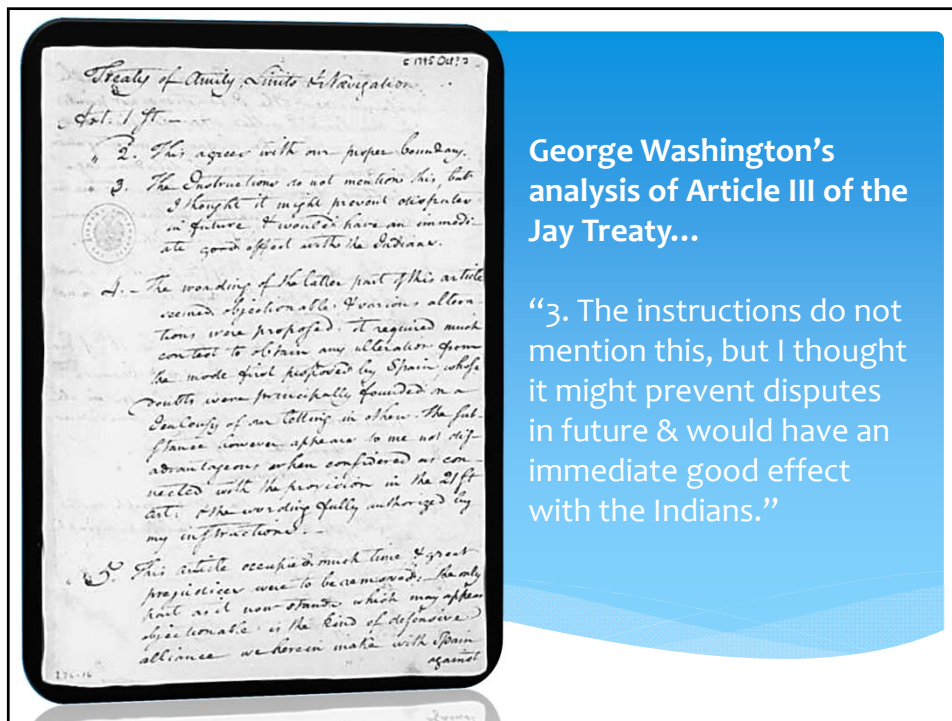 c 1795 Oct? 2
Treaty of Amity, Limits & Navigation.
Art. 1ft.—
" 2. This agrees with our proper boundary.
" 3. The Instructions do not mention this, but
I thought it might prevent disputes
in future & would have an immedi-
ate good effect with the Indians.
4.- The wording of the latter part of this article
seemed objectionable & various altera-
tions were proposed. it required much
contest to obtain any alteration from
the mode first proposed by Spain, whose
doubts were principally founded in a
Jealousy of our letting in others. The sub-
stance however appears to me not dis-
advantageous when considered as con-
nected with the provision in the 21ft
art. & the wording fully authorized by
my instructions.—
5. This article occupied much time & great
prejudices were to be removed, the only
part as it now stands which may appear
objectionable is the kind of defensive
alliance we herein make with Spain
against
176-16
George Washington's
analysis of Article III of the
Jay Treaty...
"3. The instructions do not
mention this, but I thought
it might prevent disputes
in future & would have an
immediate good effect
with the Indians."